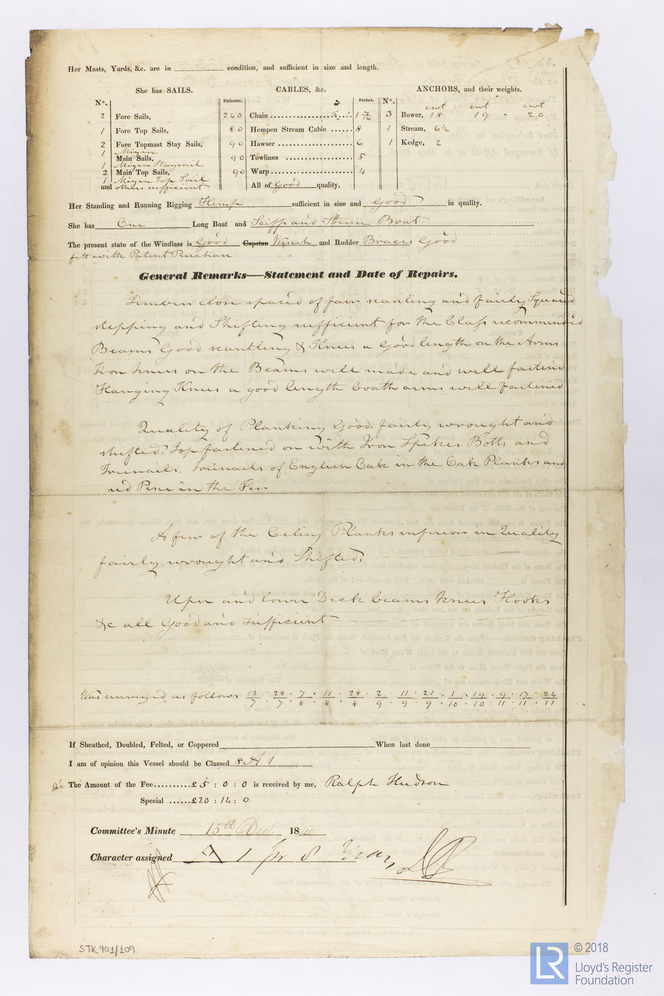 Her Masts, Yards, &c. are in condition, and sufficient in size and length.
She has SAILS. CABLES, &c. ANCHORS, and their weights.
Nº. Fathoms. Inches. Nº. cwt cwt cwt
2 Fore Sails, 240 Chain 1 3 Bower, 18 19 20
1 Fore Top Sails, 80 Hempen Stream Cable 8 1 Stream, 6½
2 Fore Topmast Stay Sails, 90 Hawser 6 1 Kedge, 2
1 Mizen
Main Sails, 90 Towlines 5
1 Mizen Staysail
2 Main Top Sails, 90 Warp 4
1 Mizen Top Sail
and others sufficient All of Good quality.
Her Standing and Running Rigging Hemp sufficient in size and Good in quality.
She has One Long Boat and Skiff and Boat
The present state of the Windlass is Good Capstan Winch and Rudder Braces Good
fitt with Patent Purchase
General Remarks—Statement and Date of Repairs.
Timbers close spaced of fair scantling and fairly Squared
stepping and Shifting sufficient for the Class recommended
Beams Good scantling & Knees a Good length on the Arms
Iron knees on the Beams well made and well fastend
Hanging Knees a good length boath arms well fastened
Quality of Planking Good. fairly wrought and
shifted. Top fastened on with Iron Spikes Bolts and
Treenails. Treenails of English Oak in the Oak Planks and
red Pine in the Fir
A few of the Celing Planks inferior in Quality
fairly wrought and Shifted.
Uper and lower Deck beams knees Hooks
&c all Good and sufficient
Was surveyed as follows 13/7 · 24/7 · 7/8 · 11/8 · 28/8 · 2/9 · 11/9 · 21/9 · 1/10 · 19/10 · 9/11 · 17/11 · 26/11
If Sheathed, Doubled, Felted, or Coppered When last done
I am of opinion this Vessel should be Classed 8 A 1
The Amount of the Fee £5 : 0 : 0 is received by me, Ralph Hudson
Special £20 : 14 : 0
Committee's Minute 15th Dec 1840
Character assigned A 1 for 8 Years
STK901/109
LR
© 2018
Lloyd's Register
Foundation